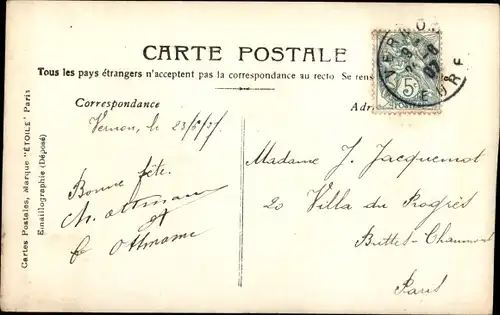 CARTE POSTALE
Tous les pays étrangers n'acceptent pas la correspondance au recto Se rens
Correspondance
Adr
Vernon, le 23/8/07.
Bonne fête.
Ch. Ottmann
et
Ottmann
Madame J. Jacquemot
20 Villa du Progrès
Buttes-Chaumont
Paris
Cartes Postales, Marque "ÉTOILE" Paris
Emaillographie (Déposé)
VERNON
EURE
5c
POSTES